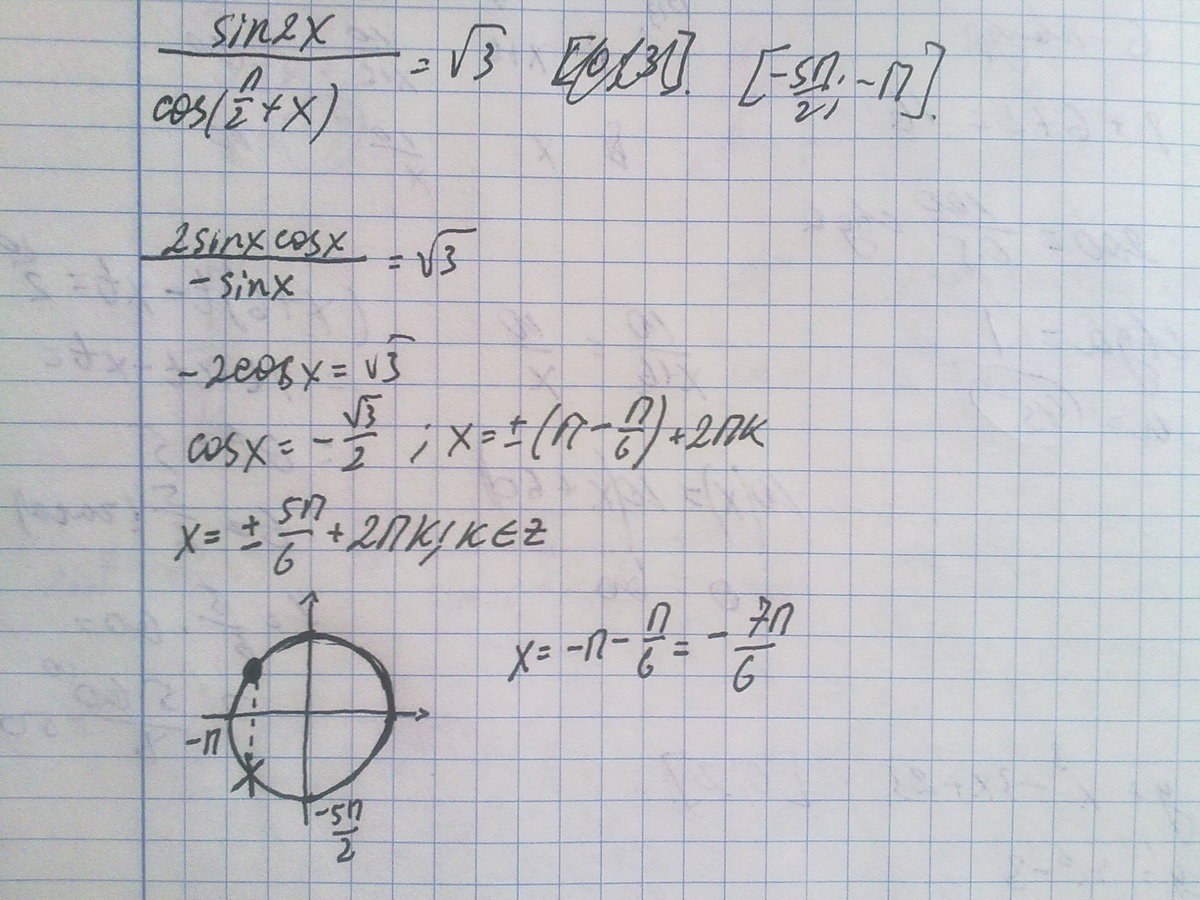 sin2x / cos(π/2 + x) = √3 [-5π/2; -π].
2sinx cosx / -sinx = √3
-2cosx = √3
cosx = -√3/2 ; x = ±(π - π/6) + 2πk
x = ± 5π/6 + 2πk; k ∈ Z
x = -π - π/6 = - 7π/6
-π
-5π/2